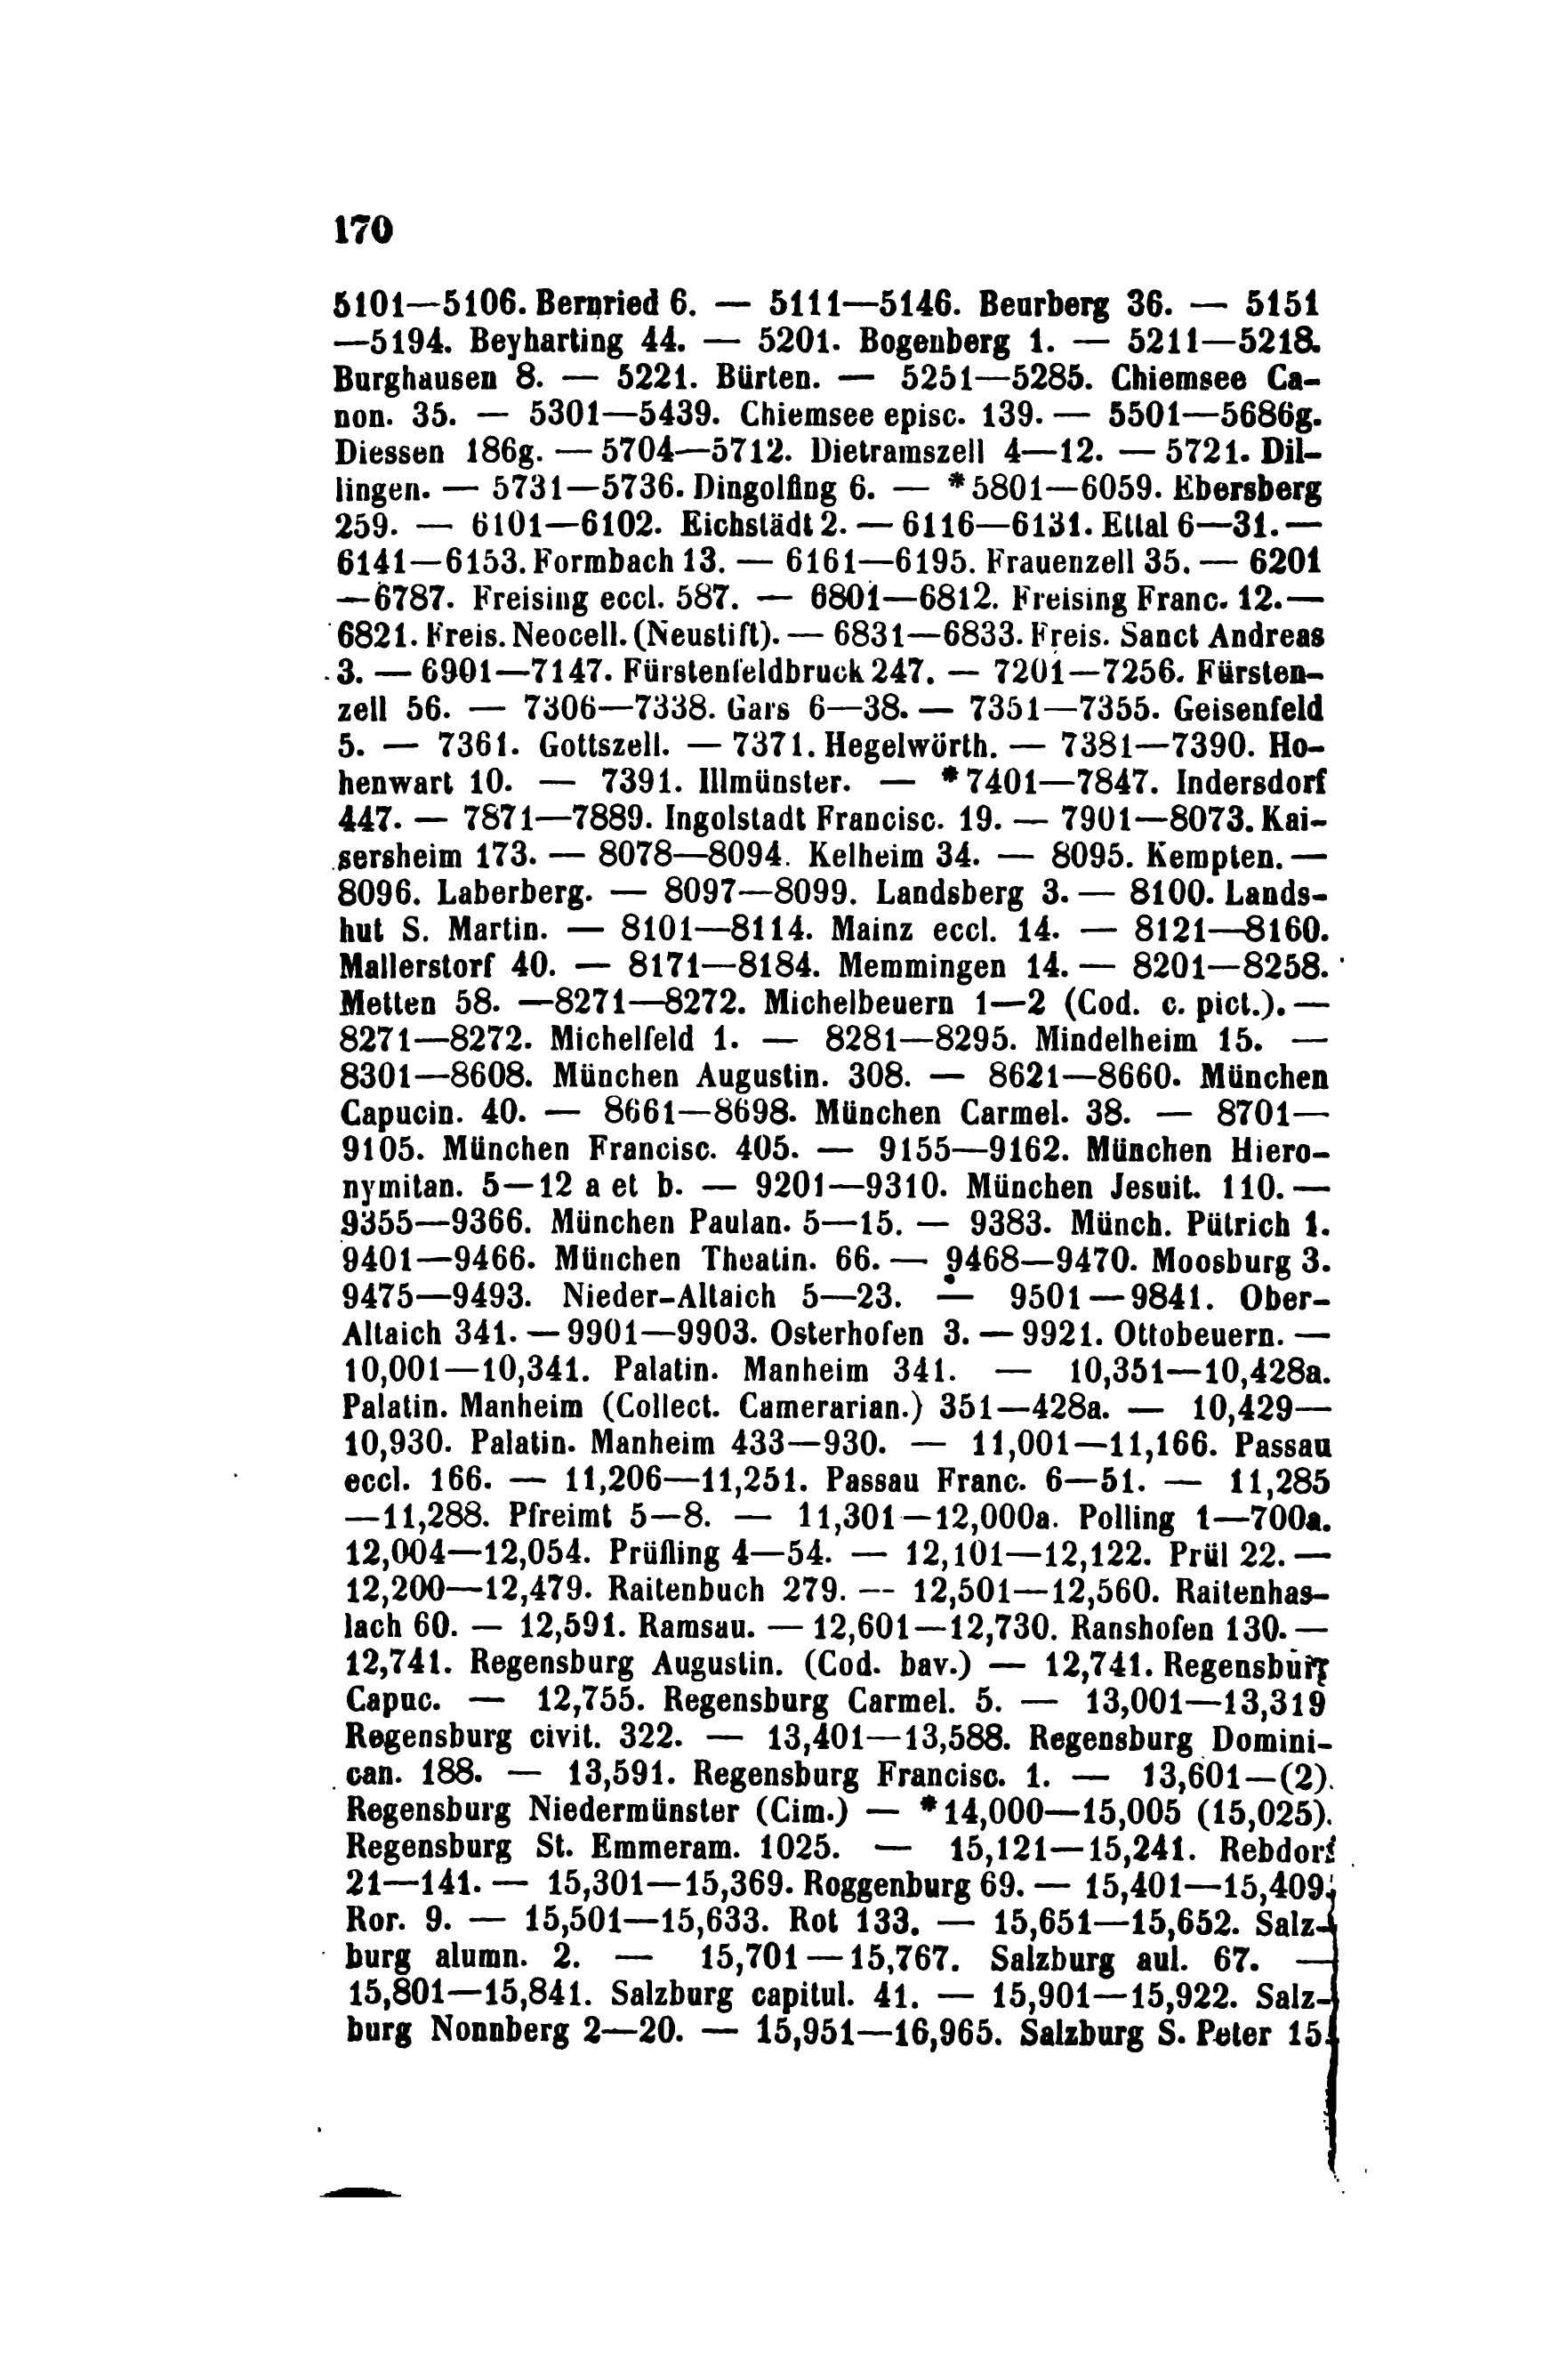 170
5101—5106. Bernried 6. — 5111—5146. Beurberg 36. — 5151
—5194. Beyharting 44. — 5201. Bogenberg 1. — 5211—5218.
Burghausen 8. — 5221. Bürten. — 5251—5285. Chiemsee Ca-
non. 35. — 5301—5439. Chiemsee episc. 139. — 5501—5686g.
Diessen 186g. — 5704—5712. Dietramszell 4—12. — 5721. Dil-
lingen. — 5731—5736. Dingolfing 6. — *5801—6059. Ebersberg
259. — 6101—6102. Eichstädt 2. — 6116—6131. Ettal 6—31. —
6141—6153. Formbach 13. — 6161—6195. Frauenzell 35. — 6201
—6787. Freising eccl. 587. — 6801—6812. Freising Franc. 12. —
6821. Freis. Neocell. (Neustift). — 6831—6833. Freis. Sanct Andreas
3. — 6901—7147. Fürstenfeldbruck 247. — 7201—7256. Fürsten-
zell 56. — 7306—7338. Gars 6—38. — 7351—7355. Geisenfeld
5. — 7361. Gottszell. — 7371. Hegelwörth. — 7381—7390. Ho-
henwart 10. — 7391. Illmünster. — *7401—7847. Indersdorf
447. — 7871—7889. Ingolstadt Francisc. 19. — 7901—8073. Kai-
sersheim 173. — 8078—8094. Kelheim 34. — 8095. Kempten. —
8096. Laberberg. — 8097—8099. Landsberg 3. — 8100. Lands-
hut S. Martin. — 8101—8114. Mainz eccl. 14. — 8121—8160.
Mallerstorf 40. — 8171—8184. Memmingen 14. — 8201—8258.
Metten 58. —8271—8272. Michelbeuern 1—2 (Cod. c. pict.). —
8271—8272. Michelfeld 1. — 8281—8295. Mindelheim 15. —
8301—8608. München Augustin. 308. — 8621—8660. München
Capucin. 40. — 8661—8698. München Carmel. 38. — 8701—
9105. München Francisc. 405. — 9155—9162. München Hiero-
nymitan. 5—12 a et b. — 9201—9310. München Jesuit. 110. —
9355—9366. München Paulan. 5—15. — 9383. Münch. Pütrich 1.
9401—9466. München Theatin. 66. — 9468—9470. Moosburg 3.
9475—9493. Nieder-Altaich 5—23. — 9501—9841. Ober-
Altaich 341. — 9901—9903. Osterhofen 3. — 9921. Ottobeuern. —
10,001—10,341. Palatin. Manheim 341. — 10,351—10,428a.
Palatin. Manheim (Collect. Camerarian.) 351—428a. — 10,429—
10,930. Palatin. Manheim 433—930. — 11,001—11,166. Passau
eccl. 166. — 11,206—11,251. Passau Franc. 6—51. — 11,285
—11,288. Pfreimt 5—8. — 11,301—12,000a. Polling 1—700a.
12,004—12,054. Prüfling 4—54. — 12,101—12,122. Prül 22. —
12,200—12,479. Raitenbuch 279. — 12,501—12,560. Raitenhas-
lach 60. — 12,591. Ramsau. — 12,601—12,730. Ranshofen 130. —
12,741. Regensburg Augustin. (Cod. bav.) — 12,741. Regensburg
Capuc. — 12,755. Regensburg Carmel. 5. — 13,001—13,319
Regensburg civit. 322. — 13,401—13,588. Regensburg Domini-
can. 188. — 13,591. Regensburg Francisc. 1. — 13,601—(2).
Regensburg Niedermünster (Cim.) — *14,000—15,005 (15,025).
Regensburg St. Emmeram. 1025. — 15,121—15,241. Rebdorf
21—141. — 15,301—15,369. Roggenburg 69. — 15,401—15,409.
Ror. 9. — 15,501—15,633. Rot 133. — 15,651—15,652. Salz-
burg alumn. 2. — 15,701—15,767. Salzburg aul. 67. —
15,801—15,841. Salzburg capitul. 41. — 15,901—15,922. Salz-
burg Nonnberg 2—20. — 15,951—16,965. Salzburg S. Peter 15.